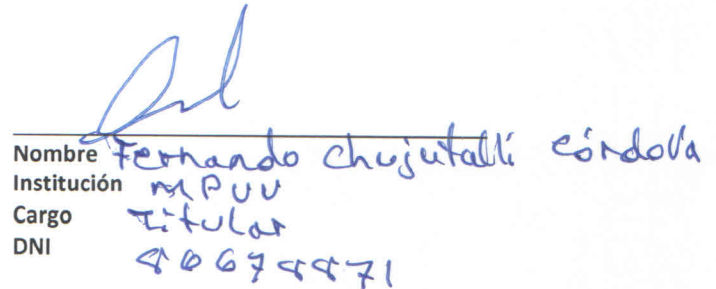 Nombre Fernando Chujutalli Córdova
Institución MPUU
Cargo Titular
DNI